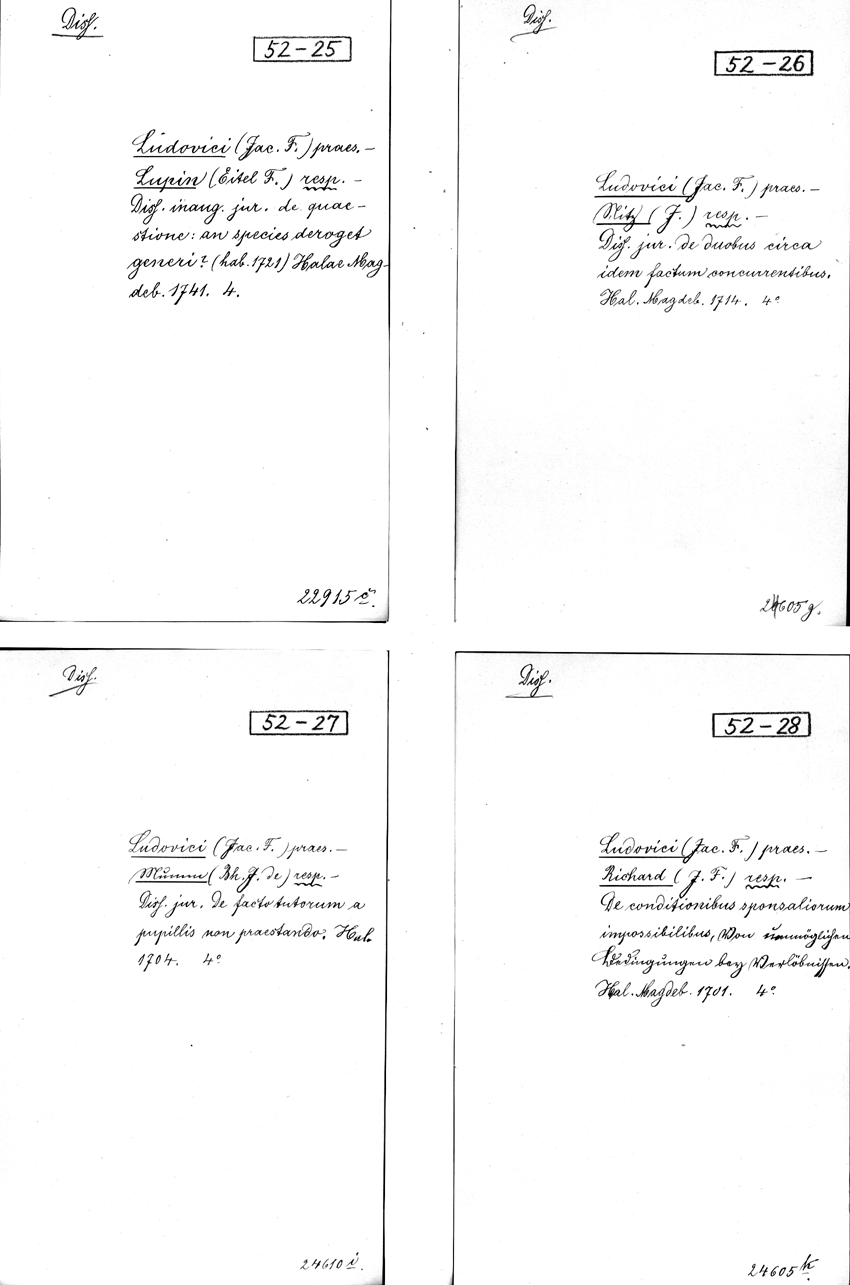 Diss.
52-25
Ludovici (Jac. F.) praes. –
Lupin (Eitel F.) resp. –
Diss. inaug. jur. de quae-
stione: an species deroget
generi? (hab. 1721) Halae Mag-
deb. 1741. 4.
22915 c.
Diss.
52-26
Ludovici (Jac. F.) praes. –
(J.) resp. –
Diss. jur. de duobus circa
idem factum concurrentibus.
Hal. Magdeb. 1714. 4°
24605 g.
Diss.
52-27
Ludovici (Jac. F.) praes. –
Mumm (Bh. J. de) resp. –
Diss. jur. de facto tutorum a
pupillis non praestando. Hal.
1704. 4°
24610 i.
Diss.
52-28
Ludovici (Jac. F.) praes. –
Richard (J. F.) resp. –
De conditionibus sponsaliorum
impossibilibus, Von unmöglichen
Bedingungen bey Verlöbnissen.
Hal. Magdeb. 1701. 4°
24605 k.